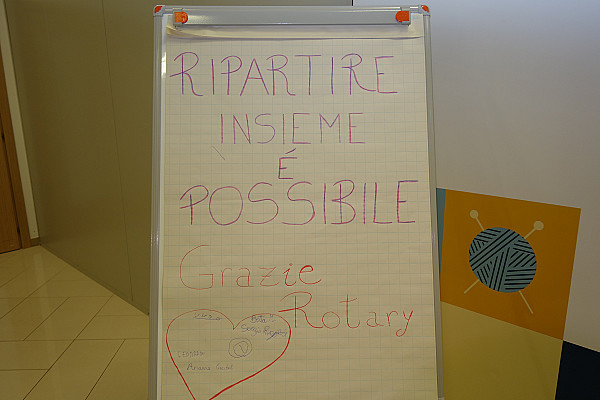 RIPARTIRE
INSIEME
É
POSSIBILE
Grazie
Rotary